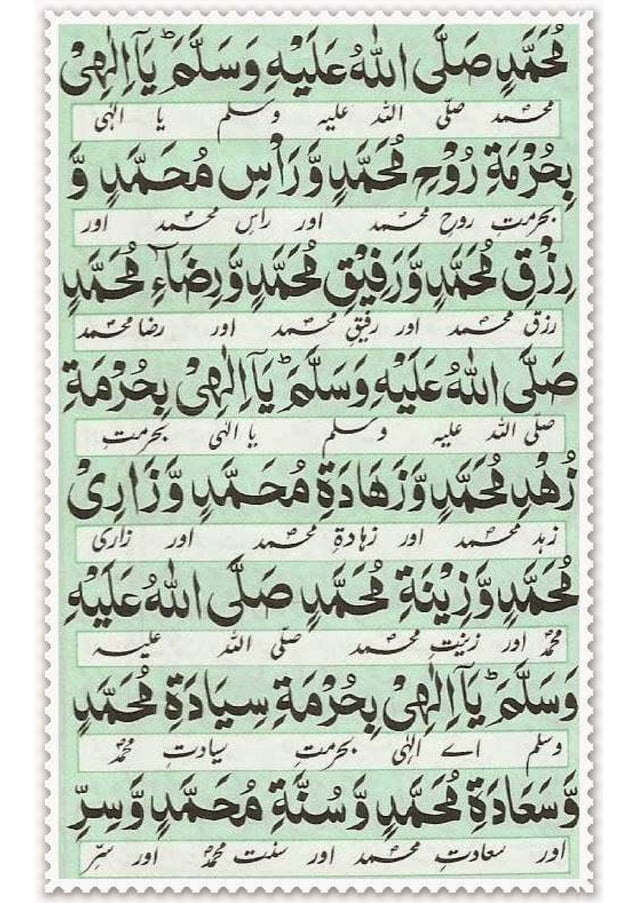 مُحَمَّدٍ صَلَّى اللهُ عَلَيْهِ وَسَلَّمَ ؕ يَآ اِلٰهِىْ
محمد صلّی اللہ علیہ وسلم یا الٰہی
بِحُرْمَةِ رُوْحِ مُحَمَّدٍ وَّرَأْسِ مُحَمَّدٍ وَّ
بحرمتِ روح محمد اور راسِ محمد اور
رِزْقِ مُحَمَّدٍ وَّرَفِيْقِ مُحَمَّدٍ وَّرِضَآءِ مُحَمَّدٍ
رزق محمد اور رفیقِ محمد اور رضا محمد
صَلَّى اللهُ عَلَيْهِ وَسَلَّمَ ؕ يَآ اِلٰهِىْ بِحُرْمَةِ
صلّی اللہ علیہ وسلم یا الٰہی بحرمتِ
زُهْدِ مُحَمَّدٍ وَّزَهَادَةِ مُحَمَّدٍ وَّزَارِىْ
زہد محمد اور زہادۃِ محمد اور زاری
مُحَمَّدٍ وَّزِيْنَةِ مُحَمَّدٍ صَلَّى اللهُ عَلَيْهِ
محمد اور زینتِ محمد صلّی اللہ علیہ
وَسَلَّمَ ؕ يَآ اِلٰهِىْ بِحُرْمَةِ سِيَادَةِ مُحَمَّدٍ
وسلم اے الٰہی بحرمتِ سیادتِ محمد
وَّسَعَادَةِ مُحَمَّدٍ وَّسُنَّةِ مُحَمَّدٍ وَّسِرِّ
اور سعادتِ محمد اور سنت محمد اور سّرِ